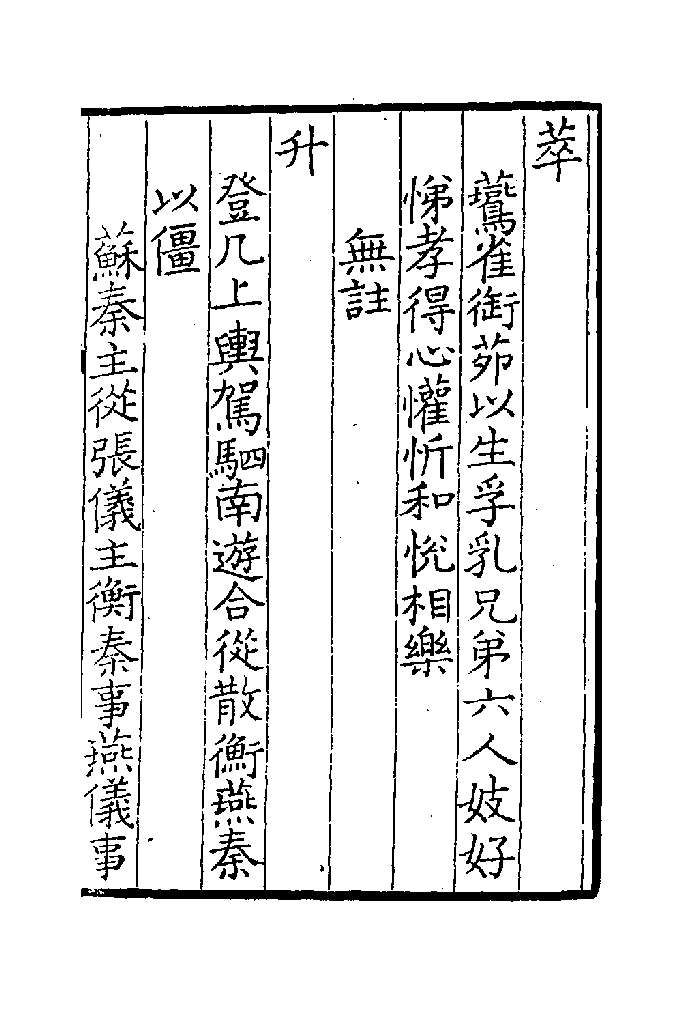 萃
鷰雀銜茆以生孚乳兄弟六人妓好
悌孝得心懽忻和恱相樂
無註
升
登几上輿駕駟南遊合從散衡燕秦
以僵
蘇秦主從張儀主衡秦事燕儀事